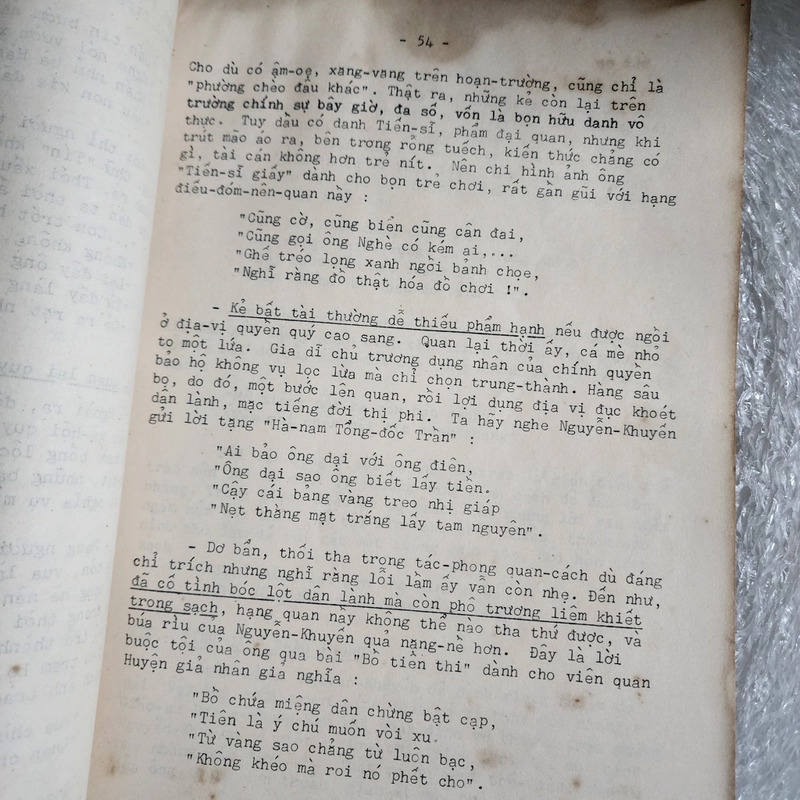 - 54 -
Cho dù có ậm-oẹ, xăng-văng trên hoạn-trường, cũng chỉ là
"phường chèo đâu khác". Thật ra, những kẻ còn lại trên
trường chính sự bây giờ, đa số, vốn là bọn hữu danh vô
thực. Tuy dầu có danh Tiến-sĩ, phẩm đại quan, nhưng khi
trút mão áo ra, bên trong rỗng tuếch, kiến thức chẳng có
gì, tài cán không hơn trẻ nít. Nên chi hình ảnh ông
"Tiến-sĩ giấy" dành cho bọn trẻ chơi, rất gần gũi với hạng
điếu-đóm-nên-quan này :
"Cũng cờ, cũng biển cũng cân đai,
"Cũng gọi ông Nghè có kém ai,...
"Ghế tréo lọng xanh ngồi bảnh chọe,
"Nghĩ rằng đồ thật hóa đồ chơi !".
- Kẻ bất tài thường dễ thiếu phẩm hạnh nếu được ngồi
ở địa-vị quyền quý cao sang. Quan lại thời ấy, cá mè nhỏ
to một lứa. Gia dĩ chủ trương dụng nhân của chính quyền
bảo hộ không vụ lọc lừa mà chỉ chọn trung-thành. Hàng sâu
bọ, do đó, một bước lên quan, rồi lợi dụng địa vị đục khoét
dân lành, mặc tiếng đời thị phi. Ta hãy nghe Nguyễn-Khuyến
gửi lời tặng "Hà-nam Tổng-đốc Trần" :
"Ai bảo ông dại với ông điên,
"Ông dại sao ông biết lấy tiền.
"Cậy cái bảng vàng treo nhị giáp
"Nẹt thằng mặt trắng lấy tam nguyên".
- Dơ bẩn, thối tha trong tác-phong quan-cách dù đáng
chỉ trích nhưng nghĩ rằng lỗi lầm ấy vẫn còn nhẹ. Đến như,
đã cố tình bóc lột dân lành mà còn phô trương liêm khiết
trong sạch, hạng quan này không thể nào tha thứ được, và
búa rìu của Nguyễn-Khuyến quả nặng-nề hơn. Đây là lời
buộc tội của ông qua bài "Bồ tiên thi" dành cho viên quan
Huyện giả nhân giả nghĩa :
"Bồ chứa miệng dân chừng bật cạp,
"Tiên là ý chú muốn vòi xu.
"Từ vàng sao chẳng từ luôn bạc,
"Không khéo mà roi nó phết cho".